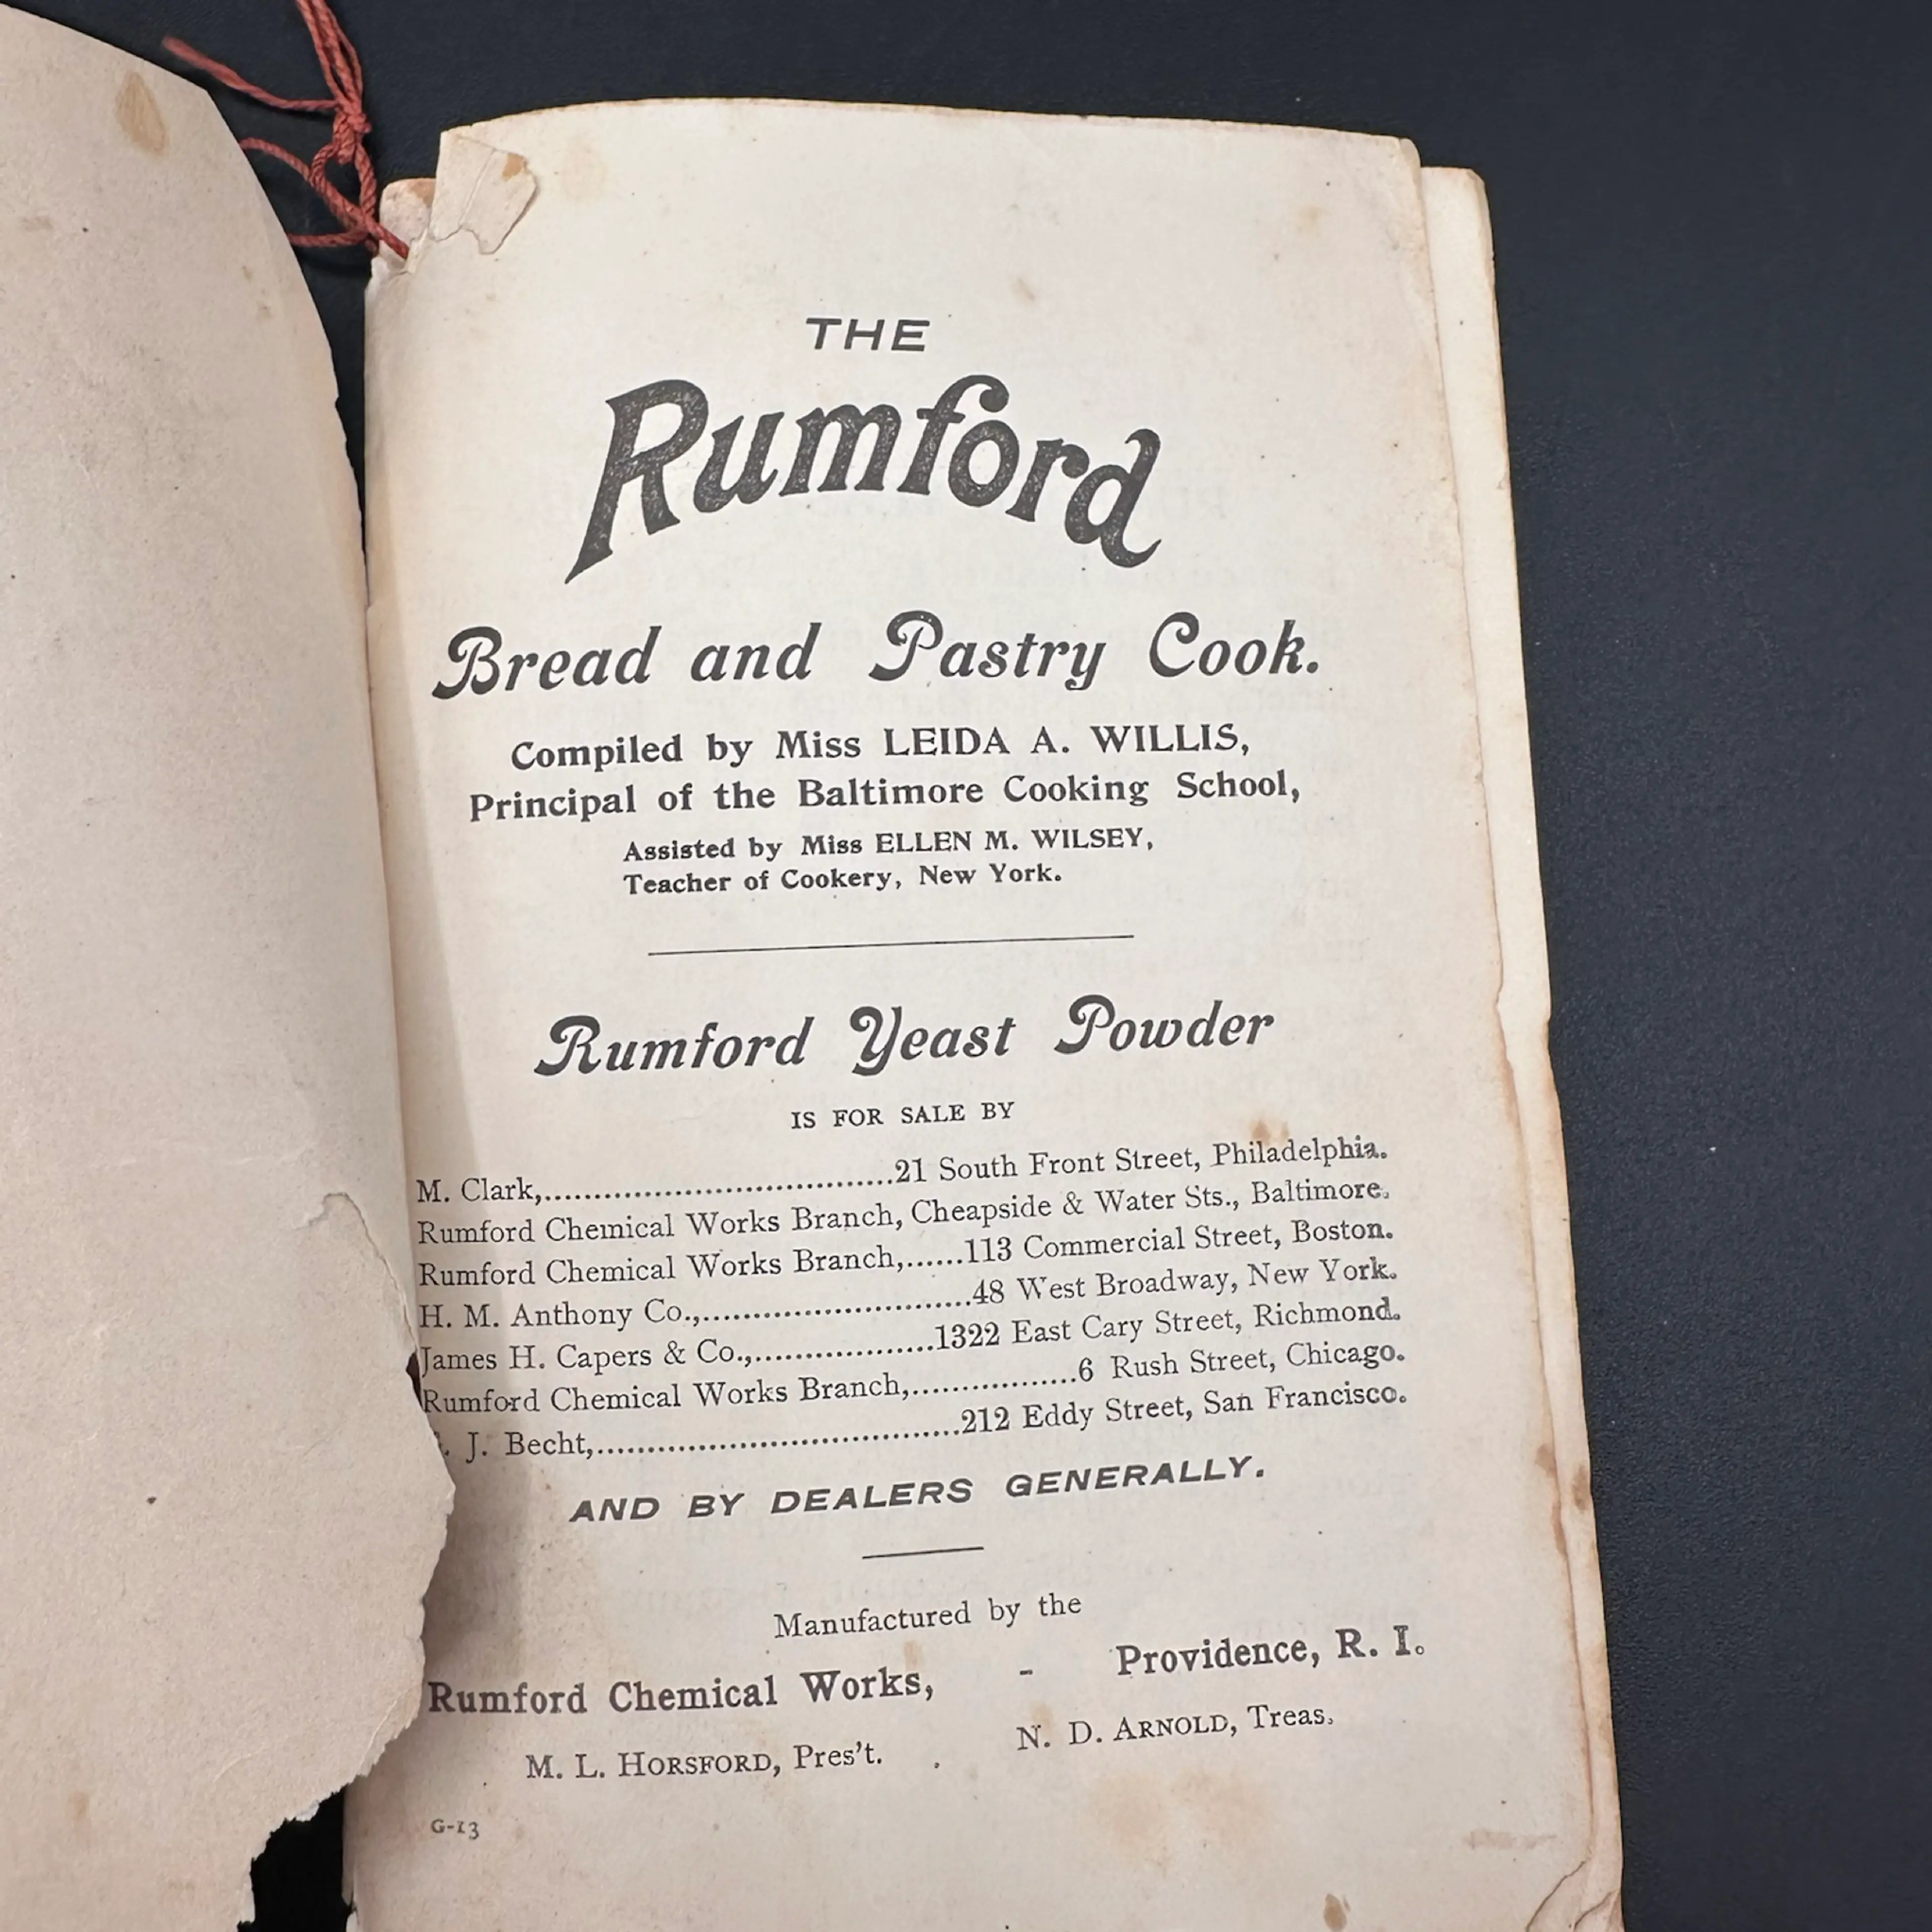 THE
Rumford
Bread and Pastry Cook.
Compiled by Miss LEIDA A. WILLIS,
Principal of the Baltimore Cooking School,
Assisted by Miss ELLEN M. WILSEY,
Teacher of Cookery, New York.
Rumford Yeast Powder
IS FOR SALE BY
M. Clark,....................................21 South Front Street, Philadelphia.
Rumford Chemical Works Branch, Cheapside & Water Sts., Baltimore.
Rumford Chemical Works Branch,......113 Commercial Street, Boston.
H. M. Anthony Co.,............................48 West Broadway, New York.
James H. Capers & Co.,..................1322 East Cary Street, Richmond.
Rumford Chemical Works Branch,.................6 Rush Street, Chicago.
J. Becht,.....................................212 Eddy Street, San Francisco.
AND BY DEALERS GENERALLY.
Manufactured by the
Rumford Chemical Works, - Providence, R. I.
M. L. HORSFORD, Pres't. N. D. ARNOLD, Treas.
G-13